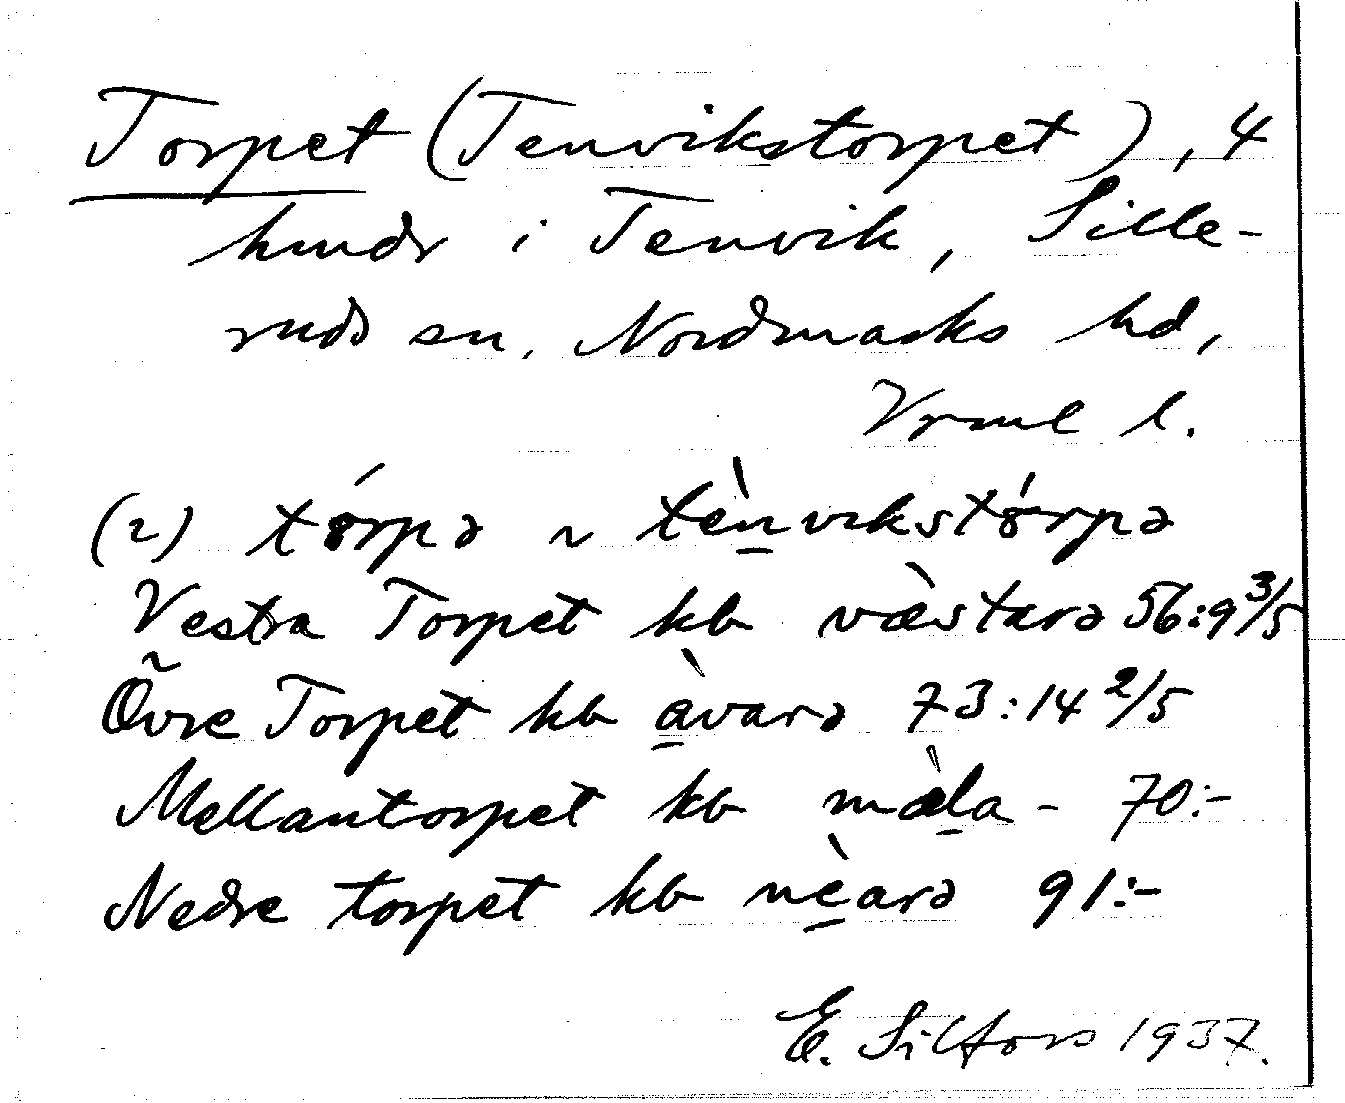 Torpet (Tenvikstorpet), 4
hmdr i Tenvik, Sille-
ruds sn, Nordmarks hd,
Vrml l.
(2) tórpə ~ tènvikstórpə
Vestra Torpet kb væ̀starə 56:9 3/5
Övre Torpet kb àvarə 73:14 2/5
Mellantorpet kb mæ̀la - 70:-
Nedre torpet kb nèarə 91:-
E. Silfors 1937.